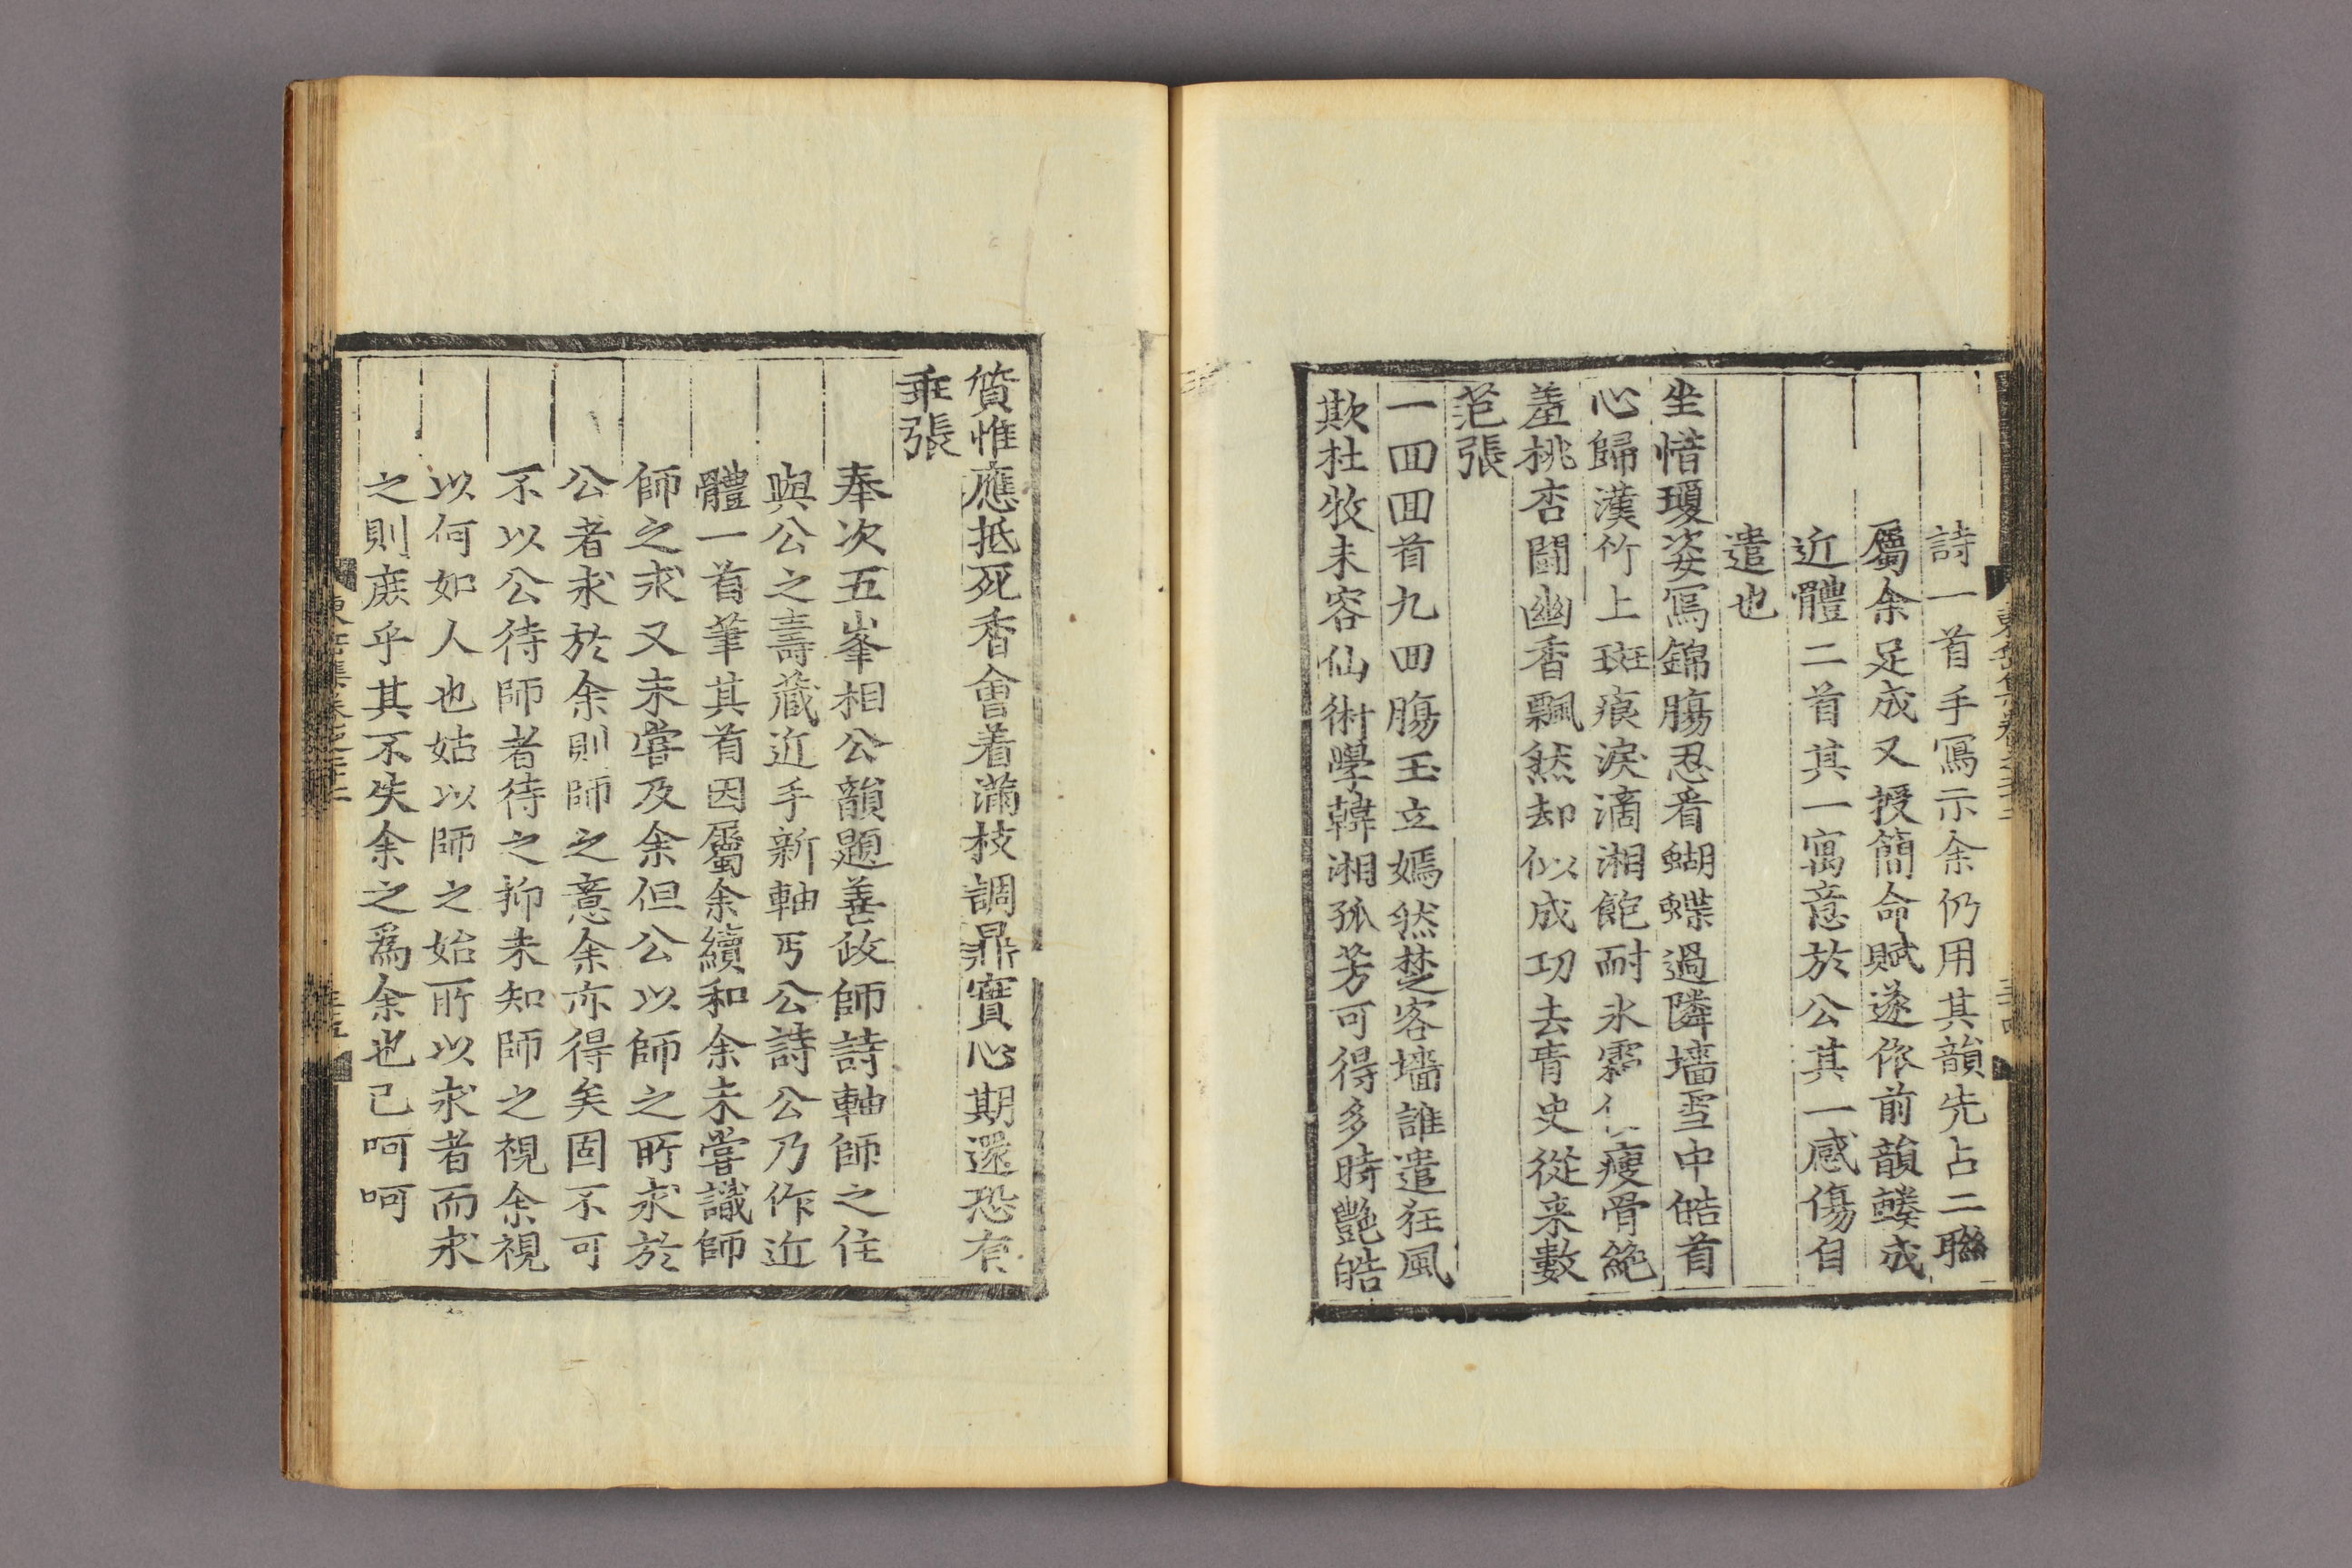 詩一首手寫示余仍用其韻先占二聯
屬余足成又授簡命賦遂依前韻竷成
近體二首其一寓意於公其一感傷自
遣也
坐惜瓊姿寫錦膓忍看蝴蝶過隣墻雪中皓首
心歸漢竹上斑痕淚滴湘飽耐氷霜瘦骨絶
羞桃杏鬪幽香飄然却似成功去青史從来數
范張
一回回首九回膓玉立嫣然楚客墻誰遣狂風
欺杜牧未容仙術學韓湘孤芳可得多時艶皓
質惟應抵死香會着滿枝調鼎實心期還恐有
乖張
奉次五峯相公韻題善政師詩軸師之住
與公之壽藏近手新軸丐公詩公乃作近
體一首筆其首因屬余續和余未嘗識師
師之求又未嘗及余但公以師之所求於
公者求於余則師之意余亦得矣固不可
不以公待師者待之抑未知師之視余視
以何如人也姑以師之始所以求者而求
之則庶乎其不失余之爲余也已呵呵